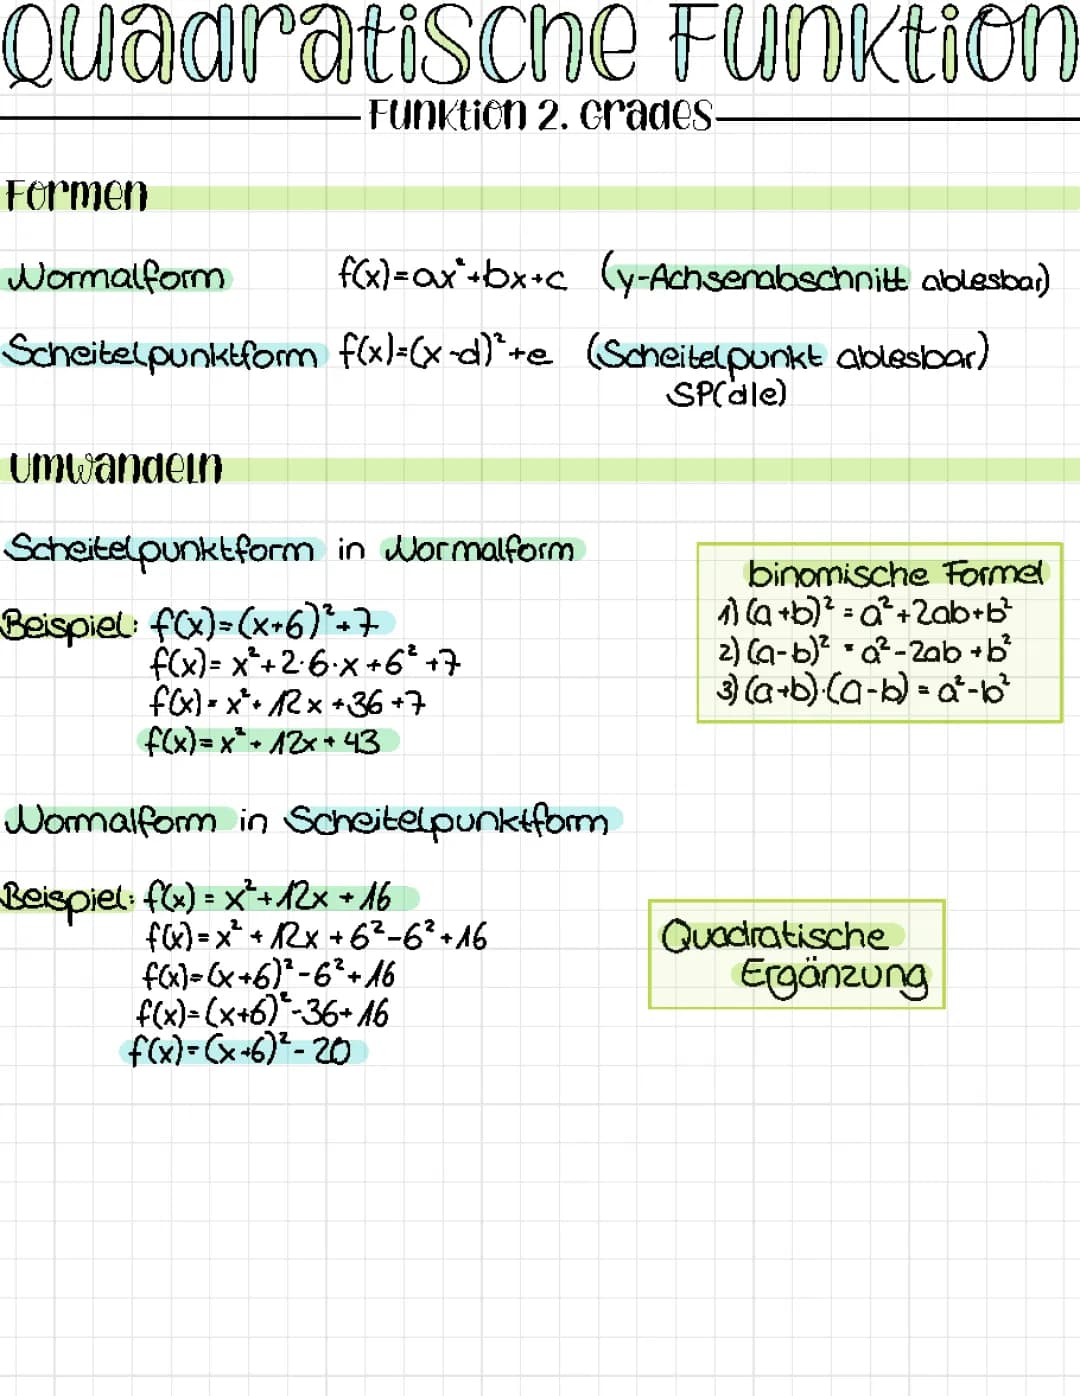 Quadratische Funktion
Funktion 2. Grades
Formen
Normalform f(x)=ax²+bx+c (y-Achsenabschnitt ablesbar)
Scheitelpunktform f(x)=(x-d)²+e (Scheitelpunkt ablesbar)
SP(d|e)
Umwandeln
Scheitelpunktform in Normalform
Beispiel: f(x)=(x+6)²+7
f(x)= x²+2·6·x+6²+7
f(x)= x²+12x+36+7
f(x)= x²+12x+43
binomische Formel
1) (a+b)² = a²+2ab+b²
2) (a-b)² = a²-2ab+b²
3) (a+b)·(a-b) = a²-b²
Normalform in Scheitelpunktform
Beispiel: f(x) = x²+12x+16
f(x)= x²+12x+6²-6²+16
f(x)=(x+6)²-6²+16
f(x)=(x+6)²-36+16
f(x)=(x+6)²-20
Quadratische
Ergänzung